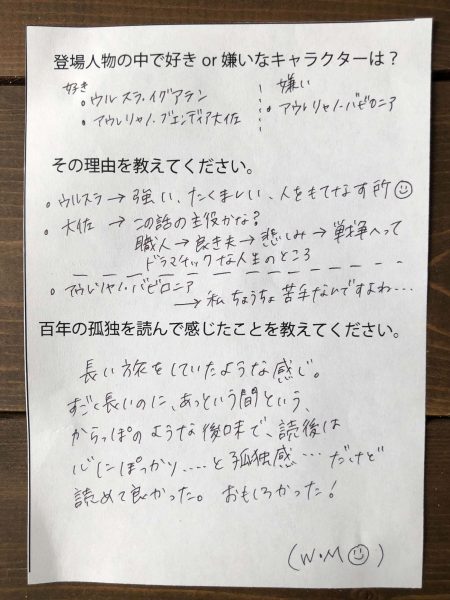 登場人物の中で好き or 嫌いなキャラクターは？
好き
• ウルスラ・イグアラン
• アウレリャノ・ブエンディア大佐
嫌い
• アウレリャノ・バビロニア
その理由を教えてください。
• ウルスラ → 強い、たくましい、人をもてなす所 ☺
• 大佐 → この話の主役かな？
職人 → 良き夫 → 悲しみ → 戦争へって
ドラマチックな人生のところ
• アウレリャノ・バビロニア
→ 私 ちょうちょ苦手なんですよわ・・・
百年の孤独を読んで感じたことを教えてください。
長い旅をしていたような感じ。
すごく長いのに、あっという間という、
からっぽのような後味で、読後は
心にぽっかり.....と孤独感... だけど
読めて良かった。おもしろかった！
(W・M☺)